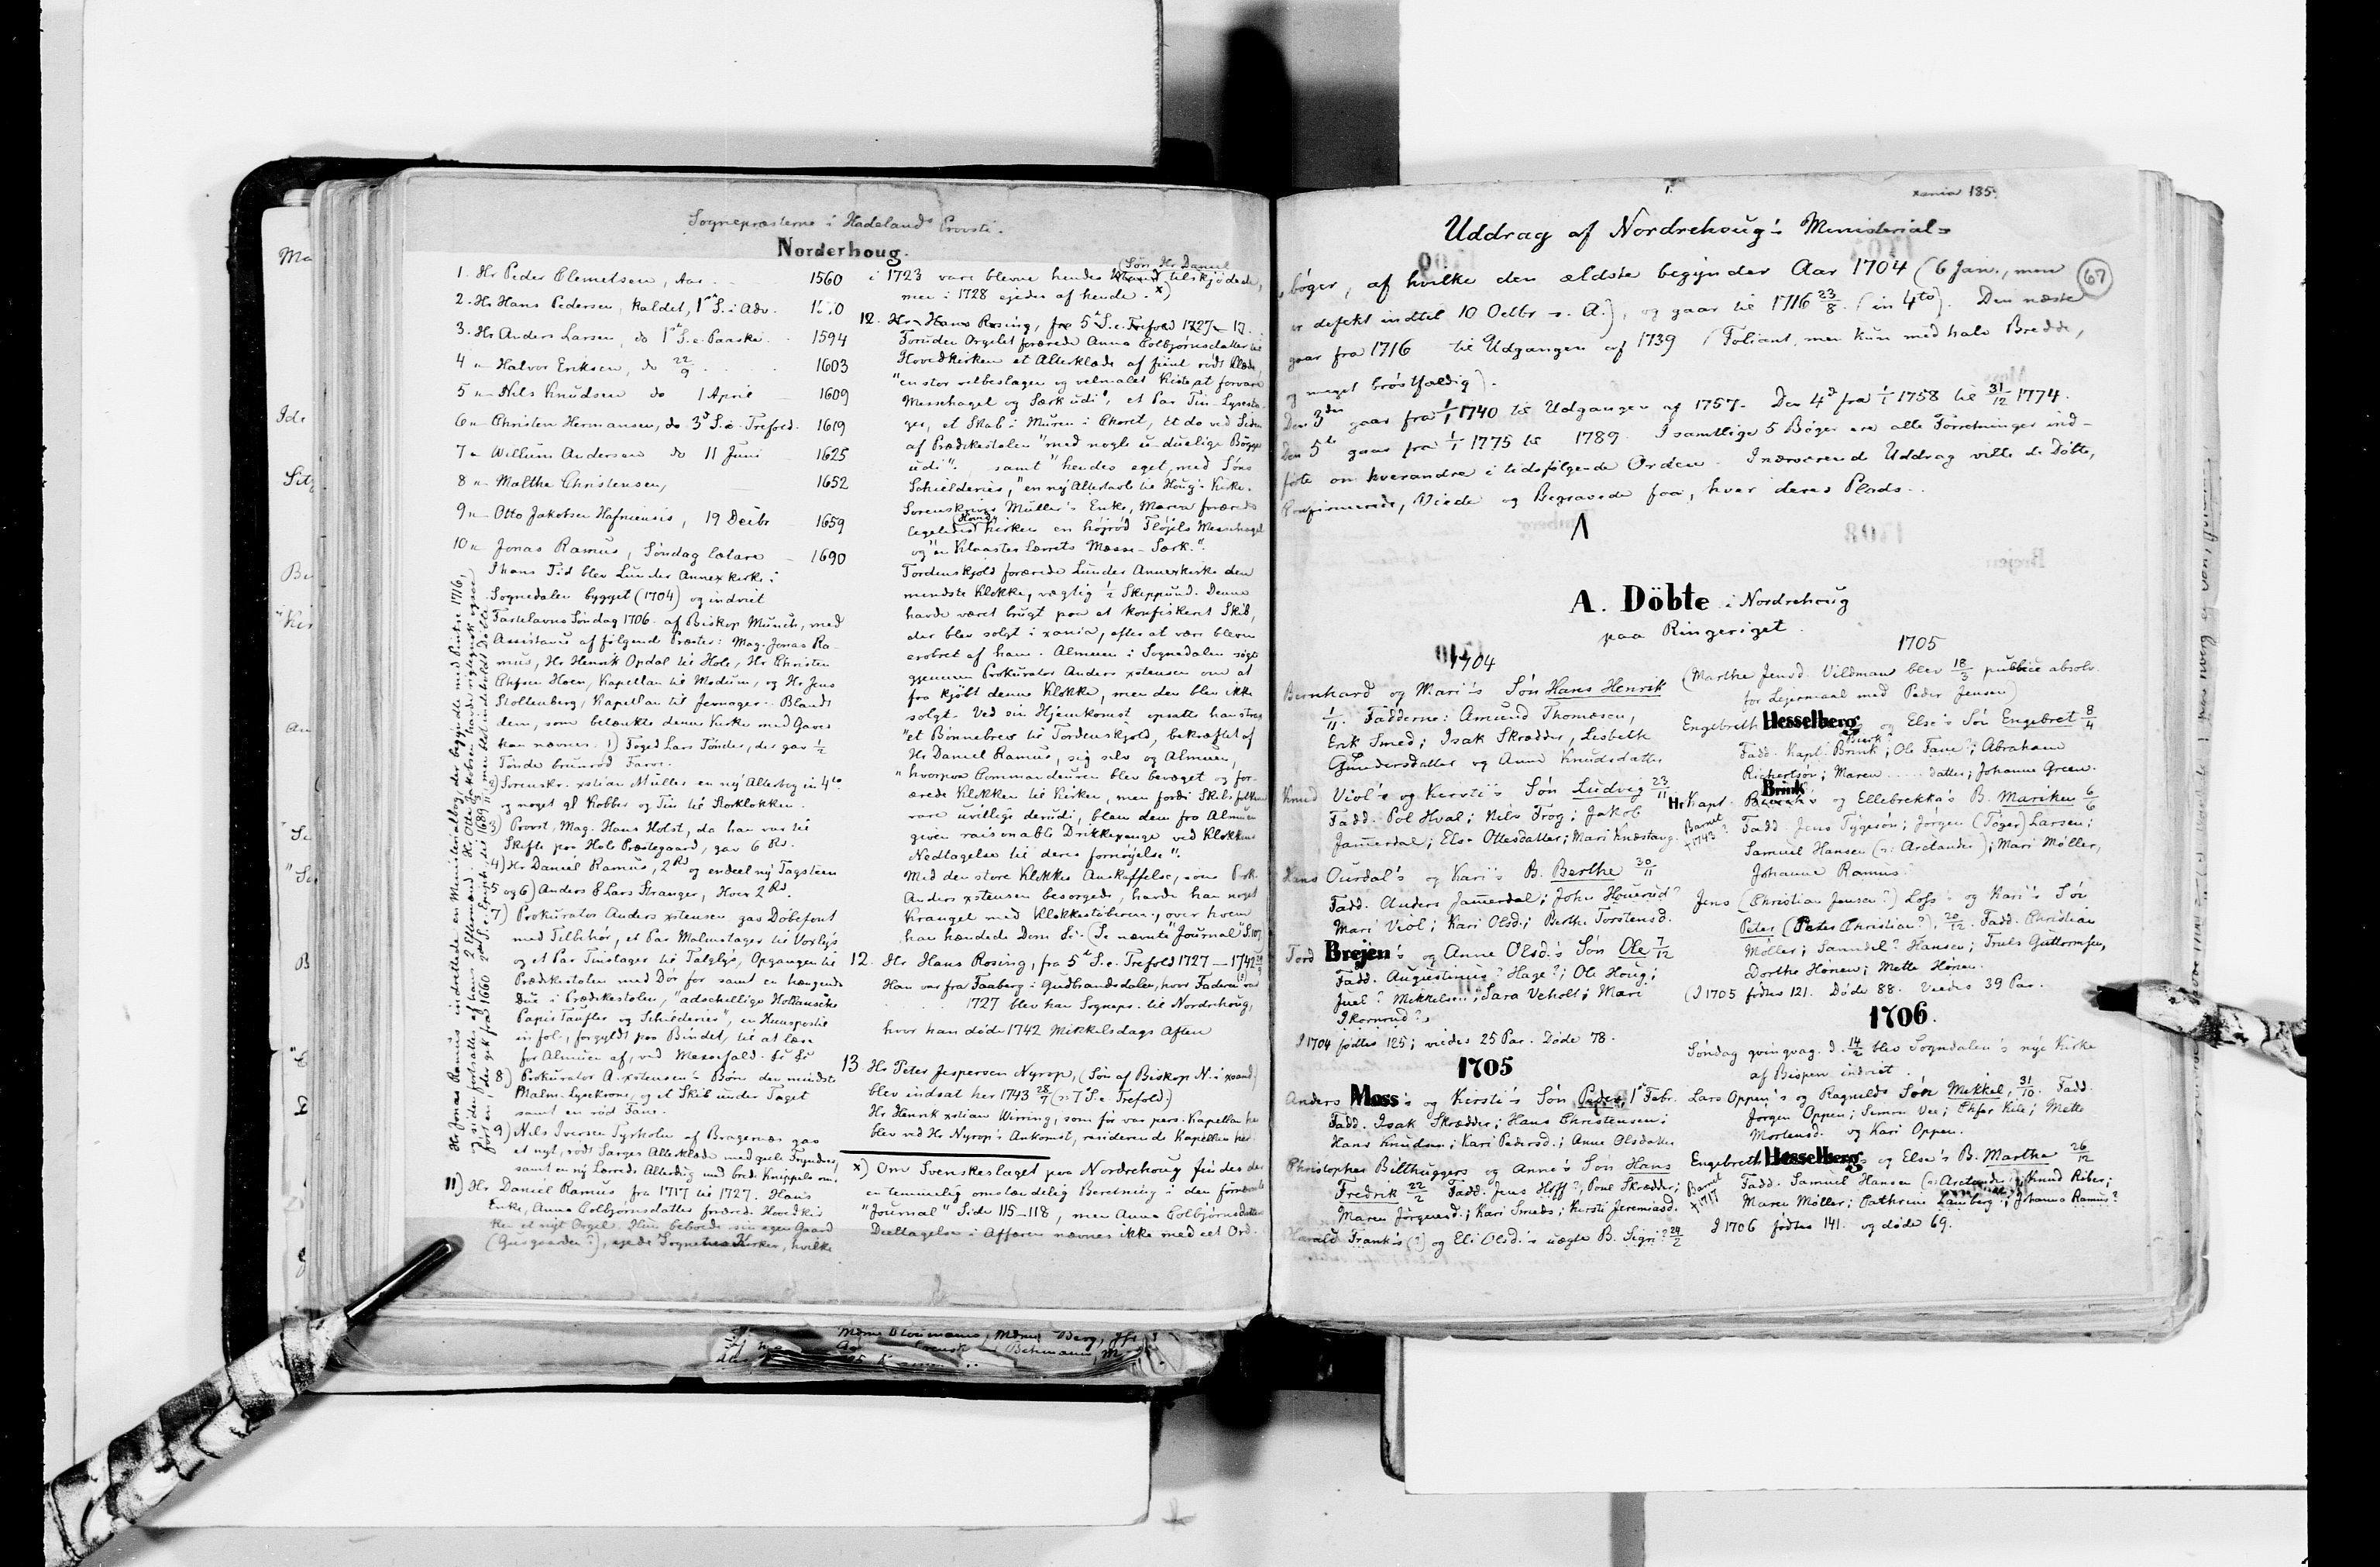 Sognepræsterne i Hadelands Provsti.
Norderhoug.
1. Hr Peder Clemetsen, Aar 1560
2. Hr Hans Pedersen, kaldet, 1 S. i Adv.
3. Hr Anders Larsen, do 1 S. e. Paaske 1594
4 " Halvor Eriksen, do 22/9 1603
5 " Nils Knudsen do 1 April 1609
6 " Christen Hermansen, do. 3d S. e. Trefold. 1619
7 " Willum Andersen do 11 Juni 1625
8 " Malthe Christensen, 1652
9 " Otto Jakobsen Hafniensis, 19 Decbr 1659
10 " Jonas Ramus, Søndag lætare 1690
I hans Tid blev Lunder Annexkirke i
Sognedalen bygget (1704) og indviet
Fastelavns Søndag 1706 af Biskop Munch, med
Assistance af følgende Præster: Mag. Jonas Ra-
mus, Hr Henrik Opdal til Hole, Hr Christen
Chfsen Hoen, Kapellan til Modum, og Hr Jens
Stoltenberg, Kapellan til Jevnager. Blandt
dem, som betænkte denne Kirke med Gaver
kan nævnes: 1) Foged Lars Tønder, der gav ½
Tønde brunrød Farve.
2) Sorenskr. xstian Müller en ny Alterbog in 4to
og noget gl Kobber og Tin til Storklokken.
3) Provst, Mag. Hans Holst, da han var til
Skifte paa Hole Præstegaard, gav 6 Rd.
4) Hr Daniel Ramus, 2 Rd og endeel ny Tagsteen
5 og 6) Anders & Lars Stranger, hver 2 Rd.
7) Prokurator Anders xstensen gav Døbefont
med Tilbehør, et Par Malmstager til Voxlys
og et Par Tinstager til Talglys, Opgangen til
Prædikestolen med Dør for samt en hængende
Due i Prædikestolen, "adschellige Hollansche
Papir Taufler og Schilderier", en Huuspostil
in fol., forgyldt paa Bindet, til at læse
for Almuen af, ved Messefald.
8) Prokurator A. xstensen's Børn den mindste
Malm-Lysekrone, og et Skib under Taget
samt en rød Fane.
9) Nils Iversen Tyrholm af Bragernæs gav
et nyt, rødt Sarges Alterklæde med gule Fryndser,
samt en ny Lærreds Alterdug med brede Knippels om.
11) Hr Daniel Ramus fra 1717 til 1727. Hans
Enke, Anna Colbjørnsdatter forærede Hovedkir
ken et nyt Orgel. Hun beboede sin egen Gaard
(Gusgaarden?), ejede Sognets Kirker, hvilke
Hr Jonas Ramus indrettede en Ministerialbog, der begyndte med Pintse 1716,
i 1723 vare blevne hendes (Søn Hr Daniel tilskjødede,
men i 1728 ejedes af hende. x)
12. Hr Hans Rosing, fra 5t S. e. Trefold 1727 – 17
Foruden Orgelet forærede Anna Colbjørnsdatter til
Hovedkirken et Alterklæde af fiint rødt Klæde,
"en stor velbeslagen og velmalet Kiste, at forvare
Messehagel og Særk udi", et Par Tin-Lysesta-
ger, et Skab i Muren i Choret, Et do ved Siden
af Prædikestolen "med nogle u-duelige Bøger
udi". samt "hendes eget, med Søns
Schielderier, "en ny Altertavle til Houg's Kirke.
Sorenskrivr Müller's Enke, Maren forærede
ligeledes (Hoved) kirken en højrød Fløjels Messehagel
og "en Klaasters Lærrets Messe-Særk."
Tordenskjold forærede Lunder Annexkirke den
mindste Klokke, vægtig ½ Skippund. Denne
havde været brugt paa et konfiskeret Skib,
der blev solgt i xania, efter at være bleven
erobret af ham. Almuen i Sognedalen søgte
gjennem Prokurator Anders xstensen om at
faa kjøbt denne Klokke, men den blev ikke
solgt. Ved sin Hjemkomst opsatte han strax
"et Bønnebrev til Tordenskjold, bekræftet af
Hr Daniel Ramus, sig selv og Almuen,
"hvorpaa Commandeuren blev bevæget og for-
ærede Klokken til Kirken, men fordi Skibsfolkene
vare uvillige derudi, blev dem fra Almuen
given raisonable Drikkepenge ved Klokkens
Nedtagelse til deres fornøyelse".
Med den store Klokkes Anskaffelse, som Prok.
Anders xstensen besørgede, havde han noget
Krangel med Klokkestøberen, over hvem
han hændede Dom. (Se nævnte "Journal" S. 107)
12. Hr Hans Rosing, fra 5t S. e. Trefold 1727 – 1742
Han var fra Faaberg i Gudbrandsdalen, hvor Faderen var
1727 blev han Sognepr. til Nordrehoug,
hvor han døde 1742 Mikkelsdags Aften
13 Hr Peter Jespersen Nyrop, (Søn af Biskop N. i xsand)
blev indsat her 1743 28/7 (ɔ: 7 S. e. Trefold.)
Hr Henrik xstian Wirring, som før var pers. Kapellan her
blev ved Hr Nyrop's Ankomst, residerende Kapellan her.
x) Om Svenskeslaget paa Nordrehoug findes der
en temmelig omstændelig Beretning i den førnævnte
"Journal" Side 115–118, men Anna Colbjørnsdatters
Deeltagelse i Affæren nævnes ikke med eet Ord.
xania 185
67
Uddrag af Nordrehoug's Ministerial=
bøger, af hvilke den ældste begynder Aar 1704 (6 Jan., men
er defekt indtil 10 Octbr s. A.), og gaar til 1716 23/8. (in 4to). Den næste
gaar fra 1716 til Udgangen af 1739 (Foliant, men kun med halv Bredde,
og meget brøstfældig).
Den 3die gaar fra 1/1 1740 til Udgangen af 1757. Den 4d fra 1/1 1758 til 31/12 1774.
Den 5te gaar fra 1/1 1775 til 1789. I samtlige 5 Bøger ere alle Forretninger ind-
førte om hverandre i tidsfølgende Orden. I nærværende Uddrag ville de Døbte,
Konfirmerede, Viede og Begravede faa, hver deres Plads.
A. Döbte i Nordrehoug
paa Ringeriget.
1704
Bernhard og Mari's Søn Hans Henrik
1/11. Fadderne: Amund Thomæsen,
Erik Smed; Isak Skrædder, Lisbeth
Gundersdatter og Anne Knudsdatter
Knud Viol's og Kersti's Søn Ludvig 23/11
Fadd. Pol Hval; Nils Frog; Jakob
Jamerdal; Else Ottesdatter; Mari Knæstang.
Hans Ourdal's og Kari's B. Berthe 30/11
Fadd. Anders Jamerdal; John Houerud?
Mari Viol; Kari Olsd.; Berthe Torstensd.
Tord Brejen's og Anne Olsd.'s Søn Ole 7/12
Fadd. Augustinus? Hage?; Ole Houg;
Juel? Mikkelsen; Sara Veholt; Mari
Ikornrud?
I 1704 fødtes 125; viedes 25 Par. Døde 78.
1705
Anders Moss's og Kersti's Søn Peder, 1 Febr.
Fadd. Isak Skrædder; Hans Christensen;
Hans Knudsen; Kari Pedersd.; Anne Olsdatter
Christopher Bilthuggers og Anne's Søn Hans
Fredrik 22/2 Fadd. Jens Hoff?; Poul Skrædder;
Maren Jørgensd.; Kari Smeds; Kersti Jeremiasd.
Harald Frank's (?) og Eli Olsd.'s uægte B. Sigri? 24/2
1705
(Marthe Jensd. Vildman blev 18/3 publice absolv.
for Lejermaal med Peder Jensen)
Engebreth Hesselberg og Else's Søn Engebret 8/4
Fadd. Kapt. Brink; Ole Fane?; Abraham
Richertsøn; Maren ..... datter; Johanne Green.
Hr Kapt. Brink og Ellebrekka's B. Mariken 6/6
Barnet † 1743? Fadd. Jens Tygesøn; Jørgen (Toger) Larsen;
Samuel Hansen (ɔ: Arctander); Mari Møller,
Johanne Ramus?
Jens (Christian Jensen?) Loss's og Kari's Søn
Peter (Peter Christian?), 20/12. Fadd. Christian
Møller; Samuel? Hansen; Truls Guttormsen,
Dorthe Hønen; Mette Hønen.
(I 1705 fødtes 121. Døde 88. Viedes 39 Par.
1706.
Søndag qvinqvag. d. 14/2 blev Sogndalen's nye Kirke
af Bispen indviet.
Lars Oppen's og Ragnild's Søn Mikkel, 31/10. Fadd.
Jørgen Oppen; Simon Vee; Chfer Kile; Mette
Mortensd. og Kari Oppen.
Engebreth Hesselberg's og Else's B. Marthe 26/12
Barnet † 1717 Fadd. Samuel Hansen (ɔ: Arctander); Knud Riber;
Maren Møller; Cathrine Lauberg?; Johanna Ramus?
I 1706 fødtes 141. og døde 69.